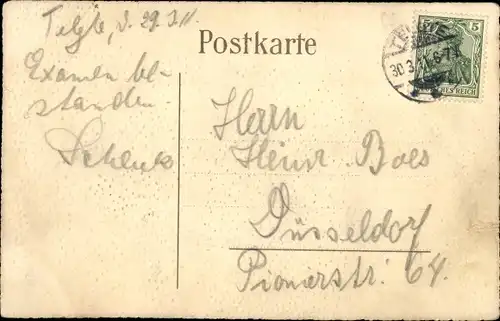 Telgte, d. 29.3.11.
Examen be-
standen.
Schenk
Postkarte
Herrn
Heinr Boes
Düsseldorf
Pionierstr. 64.
30.3. 6-7
5 5
DEUTSCHES REICH